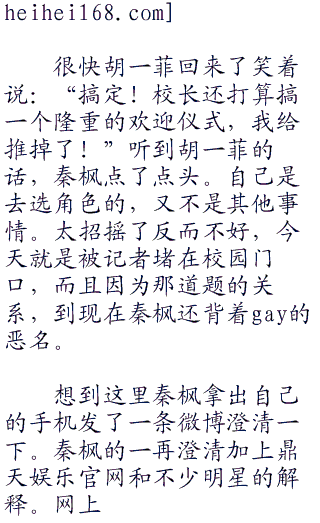 heihei168.com]
很快胡一菲回来了笑着
说：“搞定！校长还打算搞
一个隆重的欢迎仪式，我给
推掉了！”听到胡一菲的
话，秦枫点了点头。自己是
去选角色的，又不是其他事
情。太招摇了反而不好，今
天就是被记者堵在校园门
口，而且因为那道题的关
系，到现在秦枫还背着gay的
恶名。
想到这里秦枫拿出自己
的手机发了一条微博澄清一
下。秦枫的一再澄清加上鼎
天娱乐官网和不少明星的解
释。网上